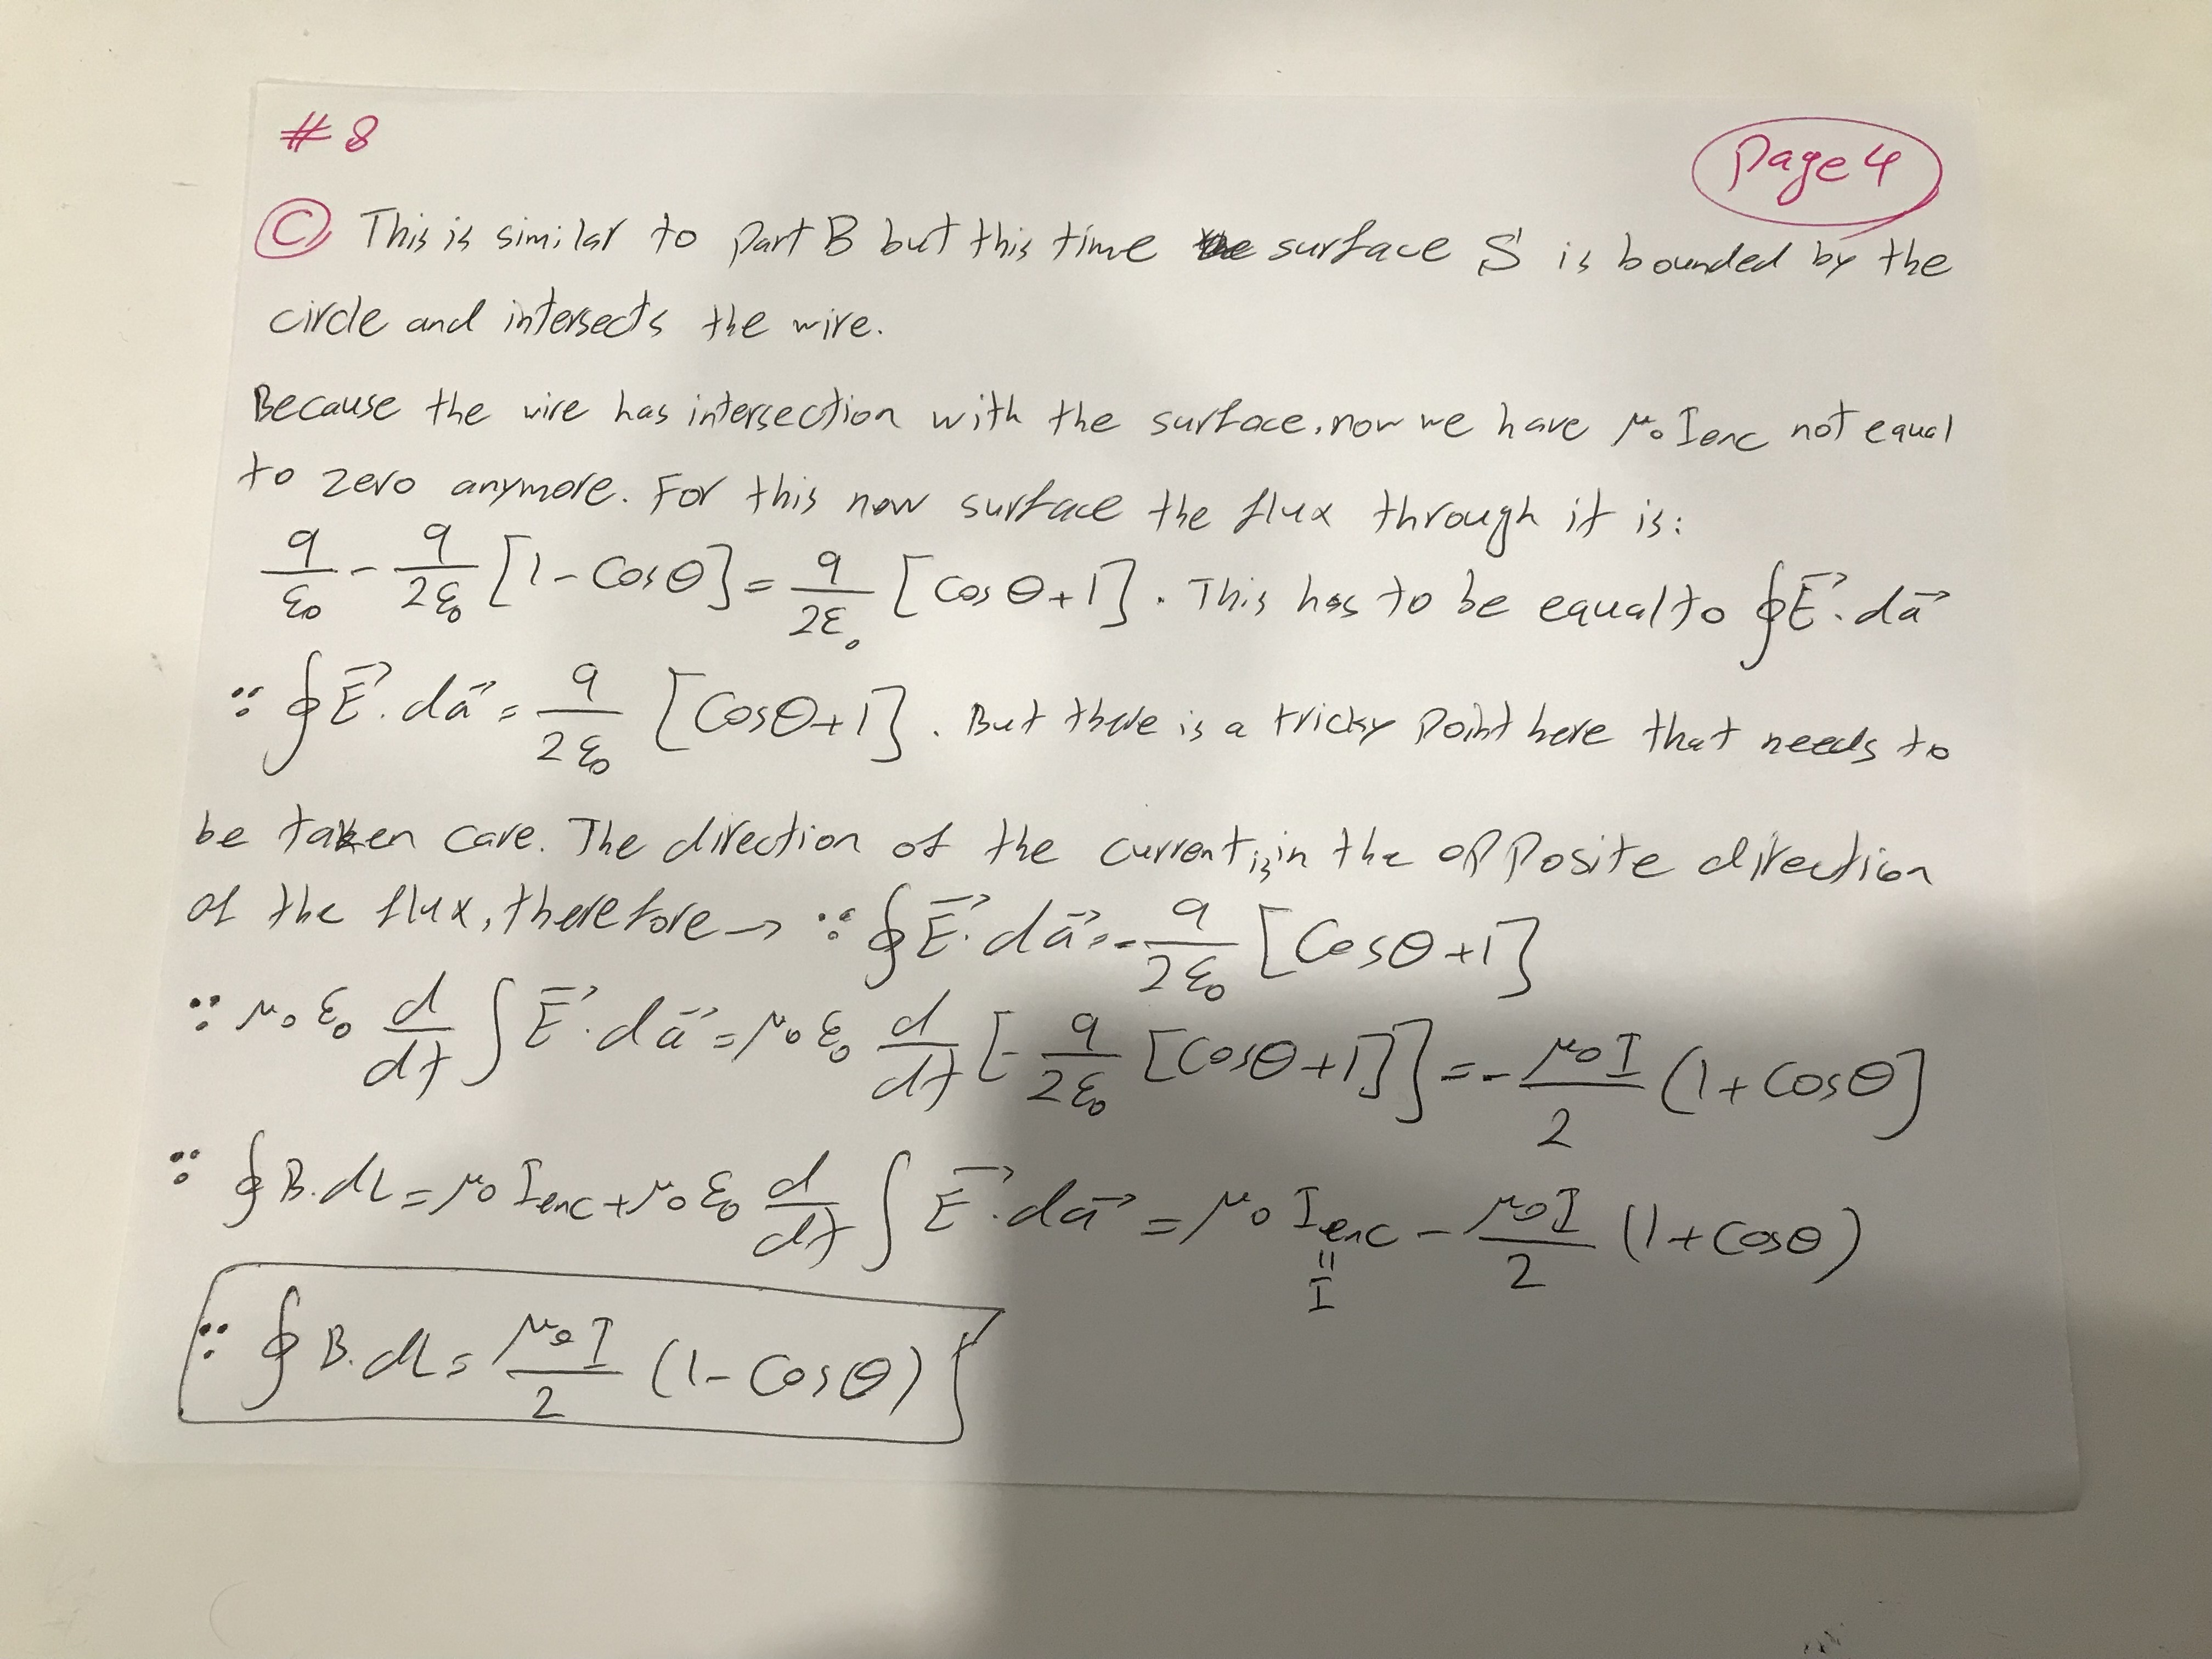 #8
Page 4
Ⓒ This is similar to part B but this time surface S is bounded by the
circle and intersects the wire.
Because the wire has intersection with the surface, now we have μ₀ Ienc not equal
to zero anymore. For this now surface the flux through it is:
q/ε₀ - q/2ε₀ [1-Cosθ] = q/2ε₀ [Cosθ+1]. This has to be equal to ∮E⃗.da⃗
∵ ∮E⃗.da⃗ = q/2ε₀ [Cosθ+1]. But there is a tricky point here that needs to
be taken care. The direction of the current is in the opposite direction
of the flux, therefore → ∵ ∮E⃗.da⃗ = - q/2ε₀ [Cosθ+1]
∵ μ₀ε₀ d/dt ∫E⃗.da⃗ = μ₀ε₀ d/dt [- q/2ε₀ [Cosθ+1]] = - μ₀I/2 (1+Cosθ]
∵ ∮B.dl = μ₀ Ienc + μ₀ε₀ d/dt ∫E⃗.da⃗ = μ₀ Ienc - μ₀I/2 (1+Cosθ)
=
I
∵ ∮B.dl = μ₀I/2 (1-Cosθ)